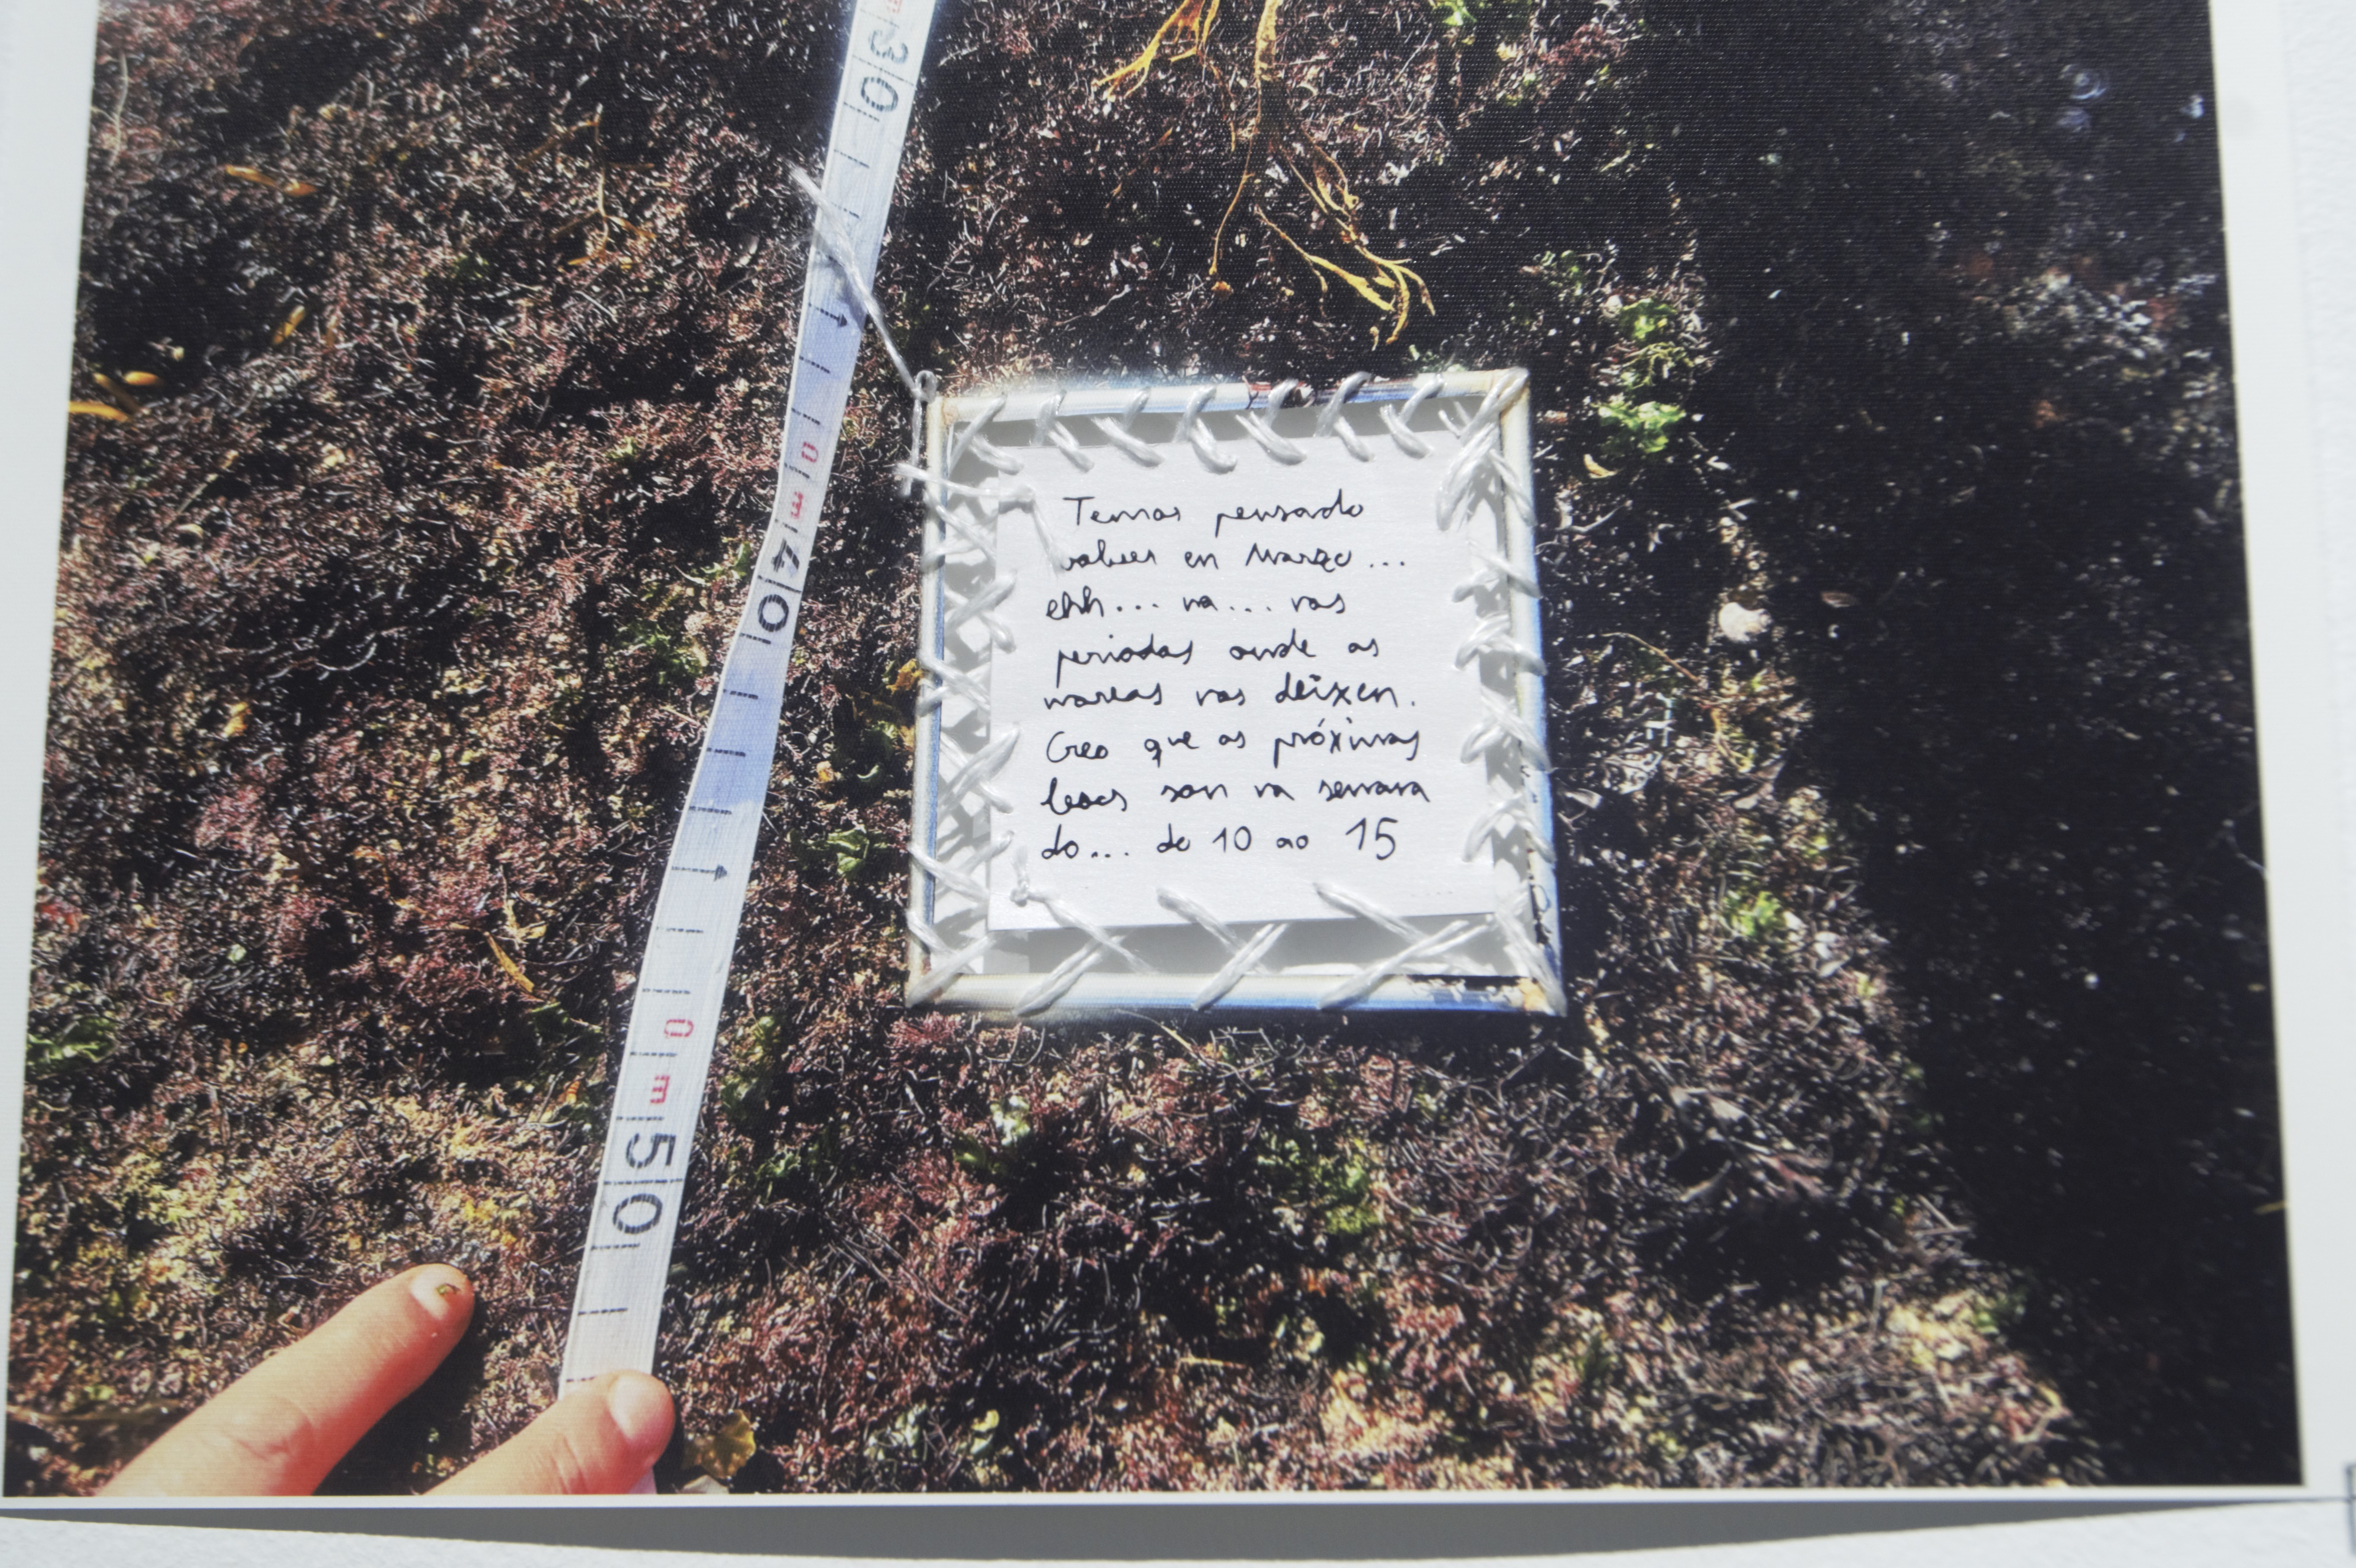 30
0m
40
0m
50
Temos pensado
volver en Marzo...
ehh... na... nos
periodos onde as
mareas nos deixen.
Creo que as próximas
boas son na semana
do... do 10 ao 15